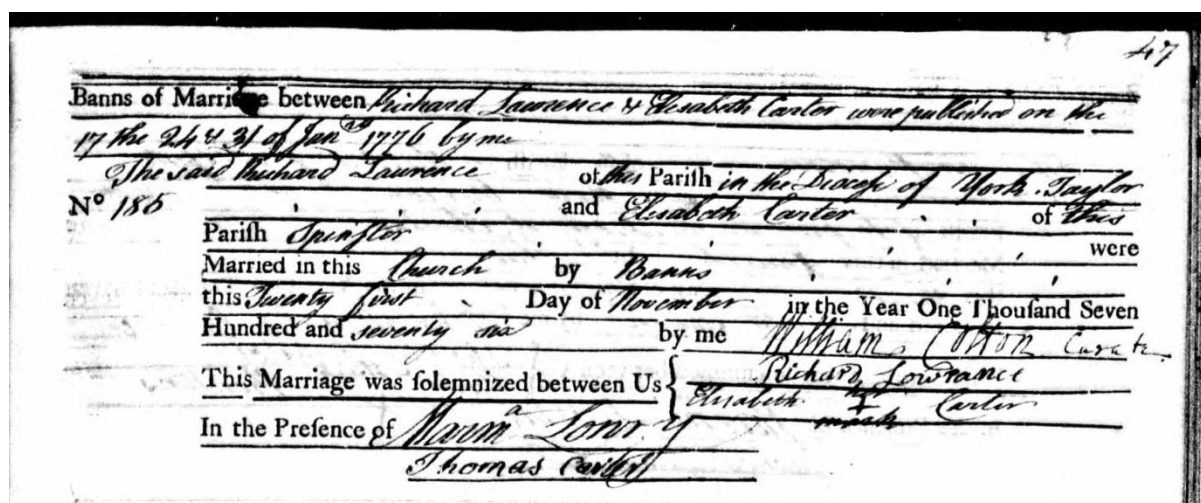 47
Banns of Marriage between Richard Lawrence & Elisabeth Carter were published on the
17 the 24 & 31 of Jan 1776 by me
The said Richard Lawrence of this Pariſh in the Diocese of York. Taylor
No 185 and Elisabeth Carter of this
Pariſh Spinster were
Married in this Church by Banns
this Twenty first Day of November in the Year One Thouſand Seven
Hundred and seventy six by me William Cotton Curate
This Marriage was ſolemnized between Us { Richard Lowrance
Elisabeth her + mark Carter
In the Preſence of Lowry
Thomas Carter